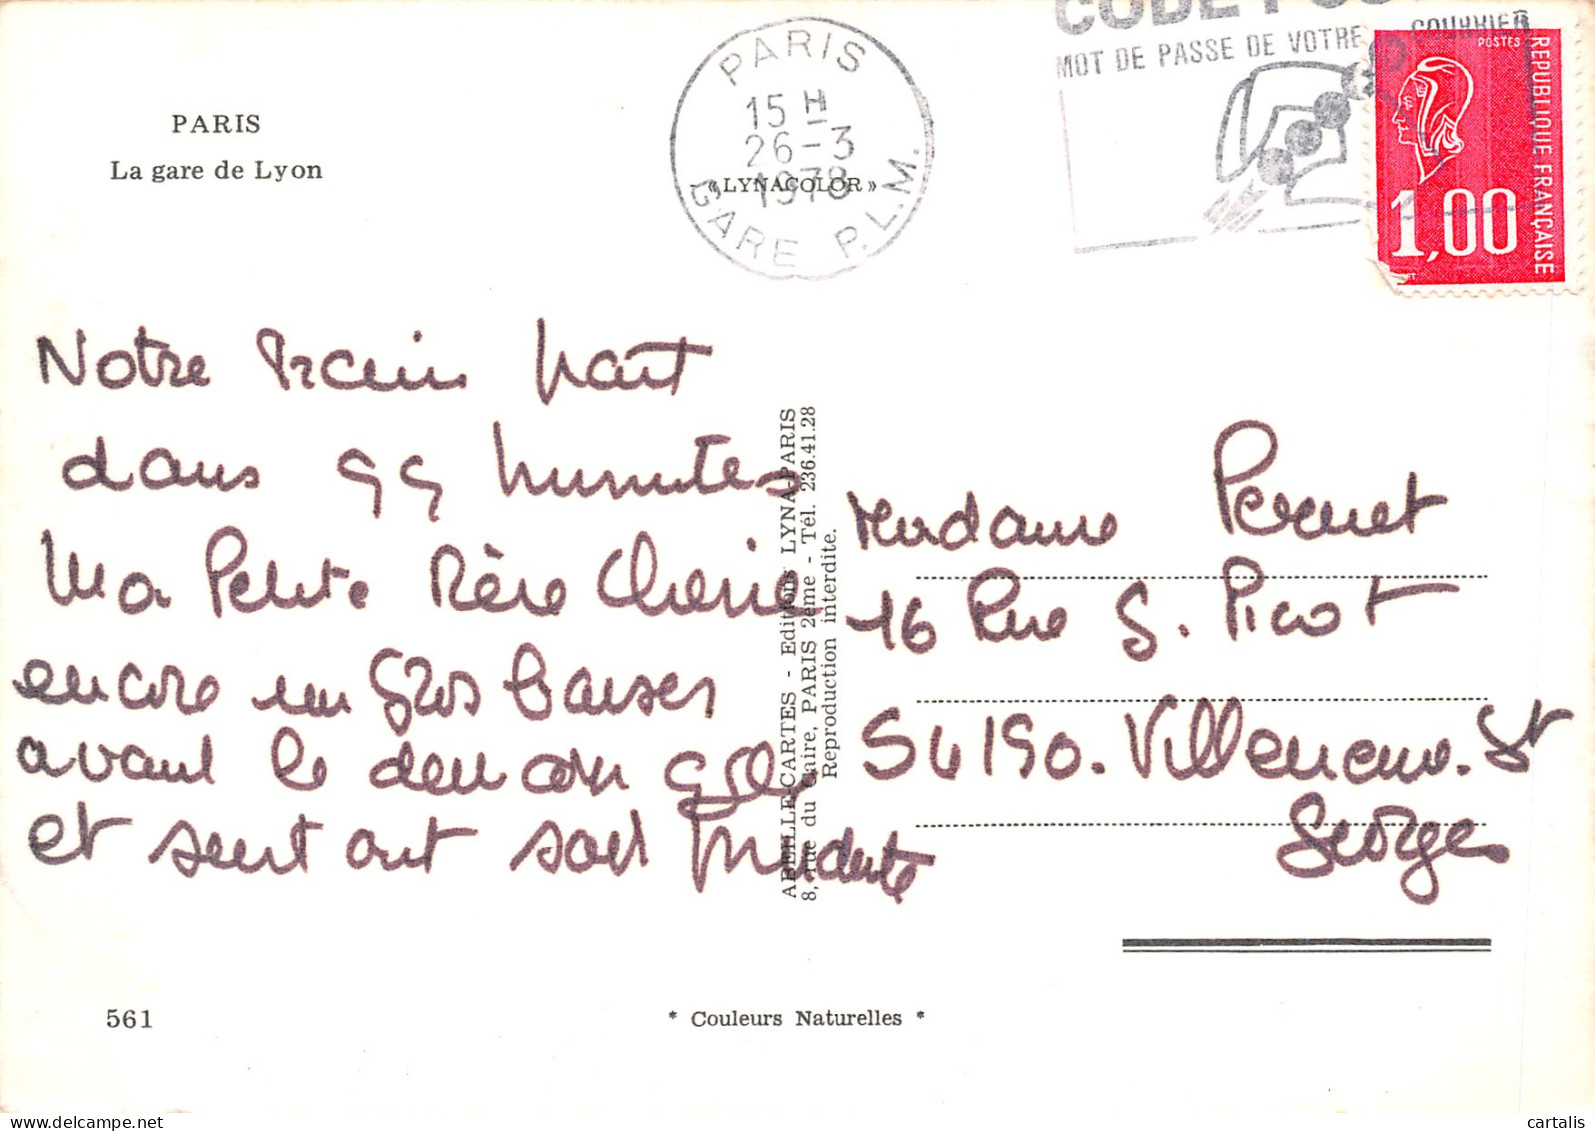 PARIS
La gare de Lyon
PARIS
15 H
26-3
1978
GARE P.L.M.
«LYNACOLOR»
MOT DE PASSE DE VOTRE COURRIER
POSTES
REPUBLIQUE FRANÇAISE
1,00
Notre train part
dans qq minutes
Ma Petite Mère Cherie
encore un gros baiser
avant le
et surtout sois prudente
ABEILLE-CARTES - Editions LYNA-PARIS
8, rue du Caire, PARIS 2ème - Tél. 236.41.28
Reproduction interdite.
Madame Pernet
16 Rue G. Picot
54190. Villeneuve. St
Georges
561
* Couleurs Naturelles *
cartalis
www.delcampe.net